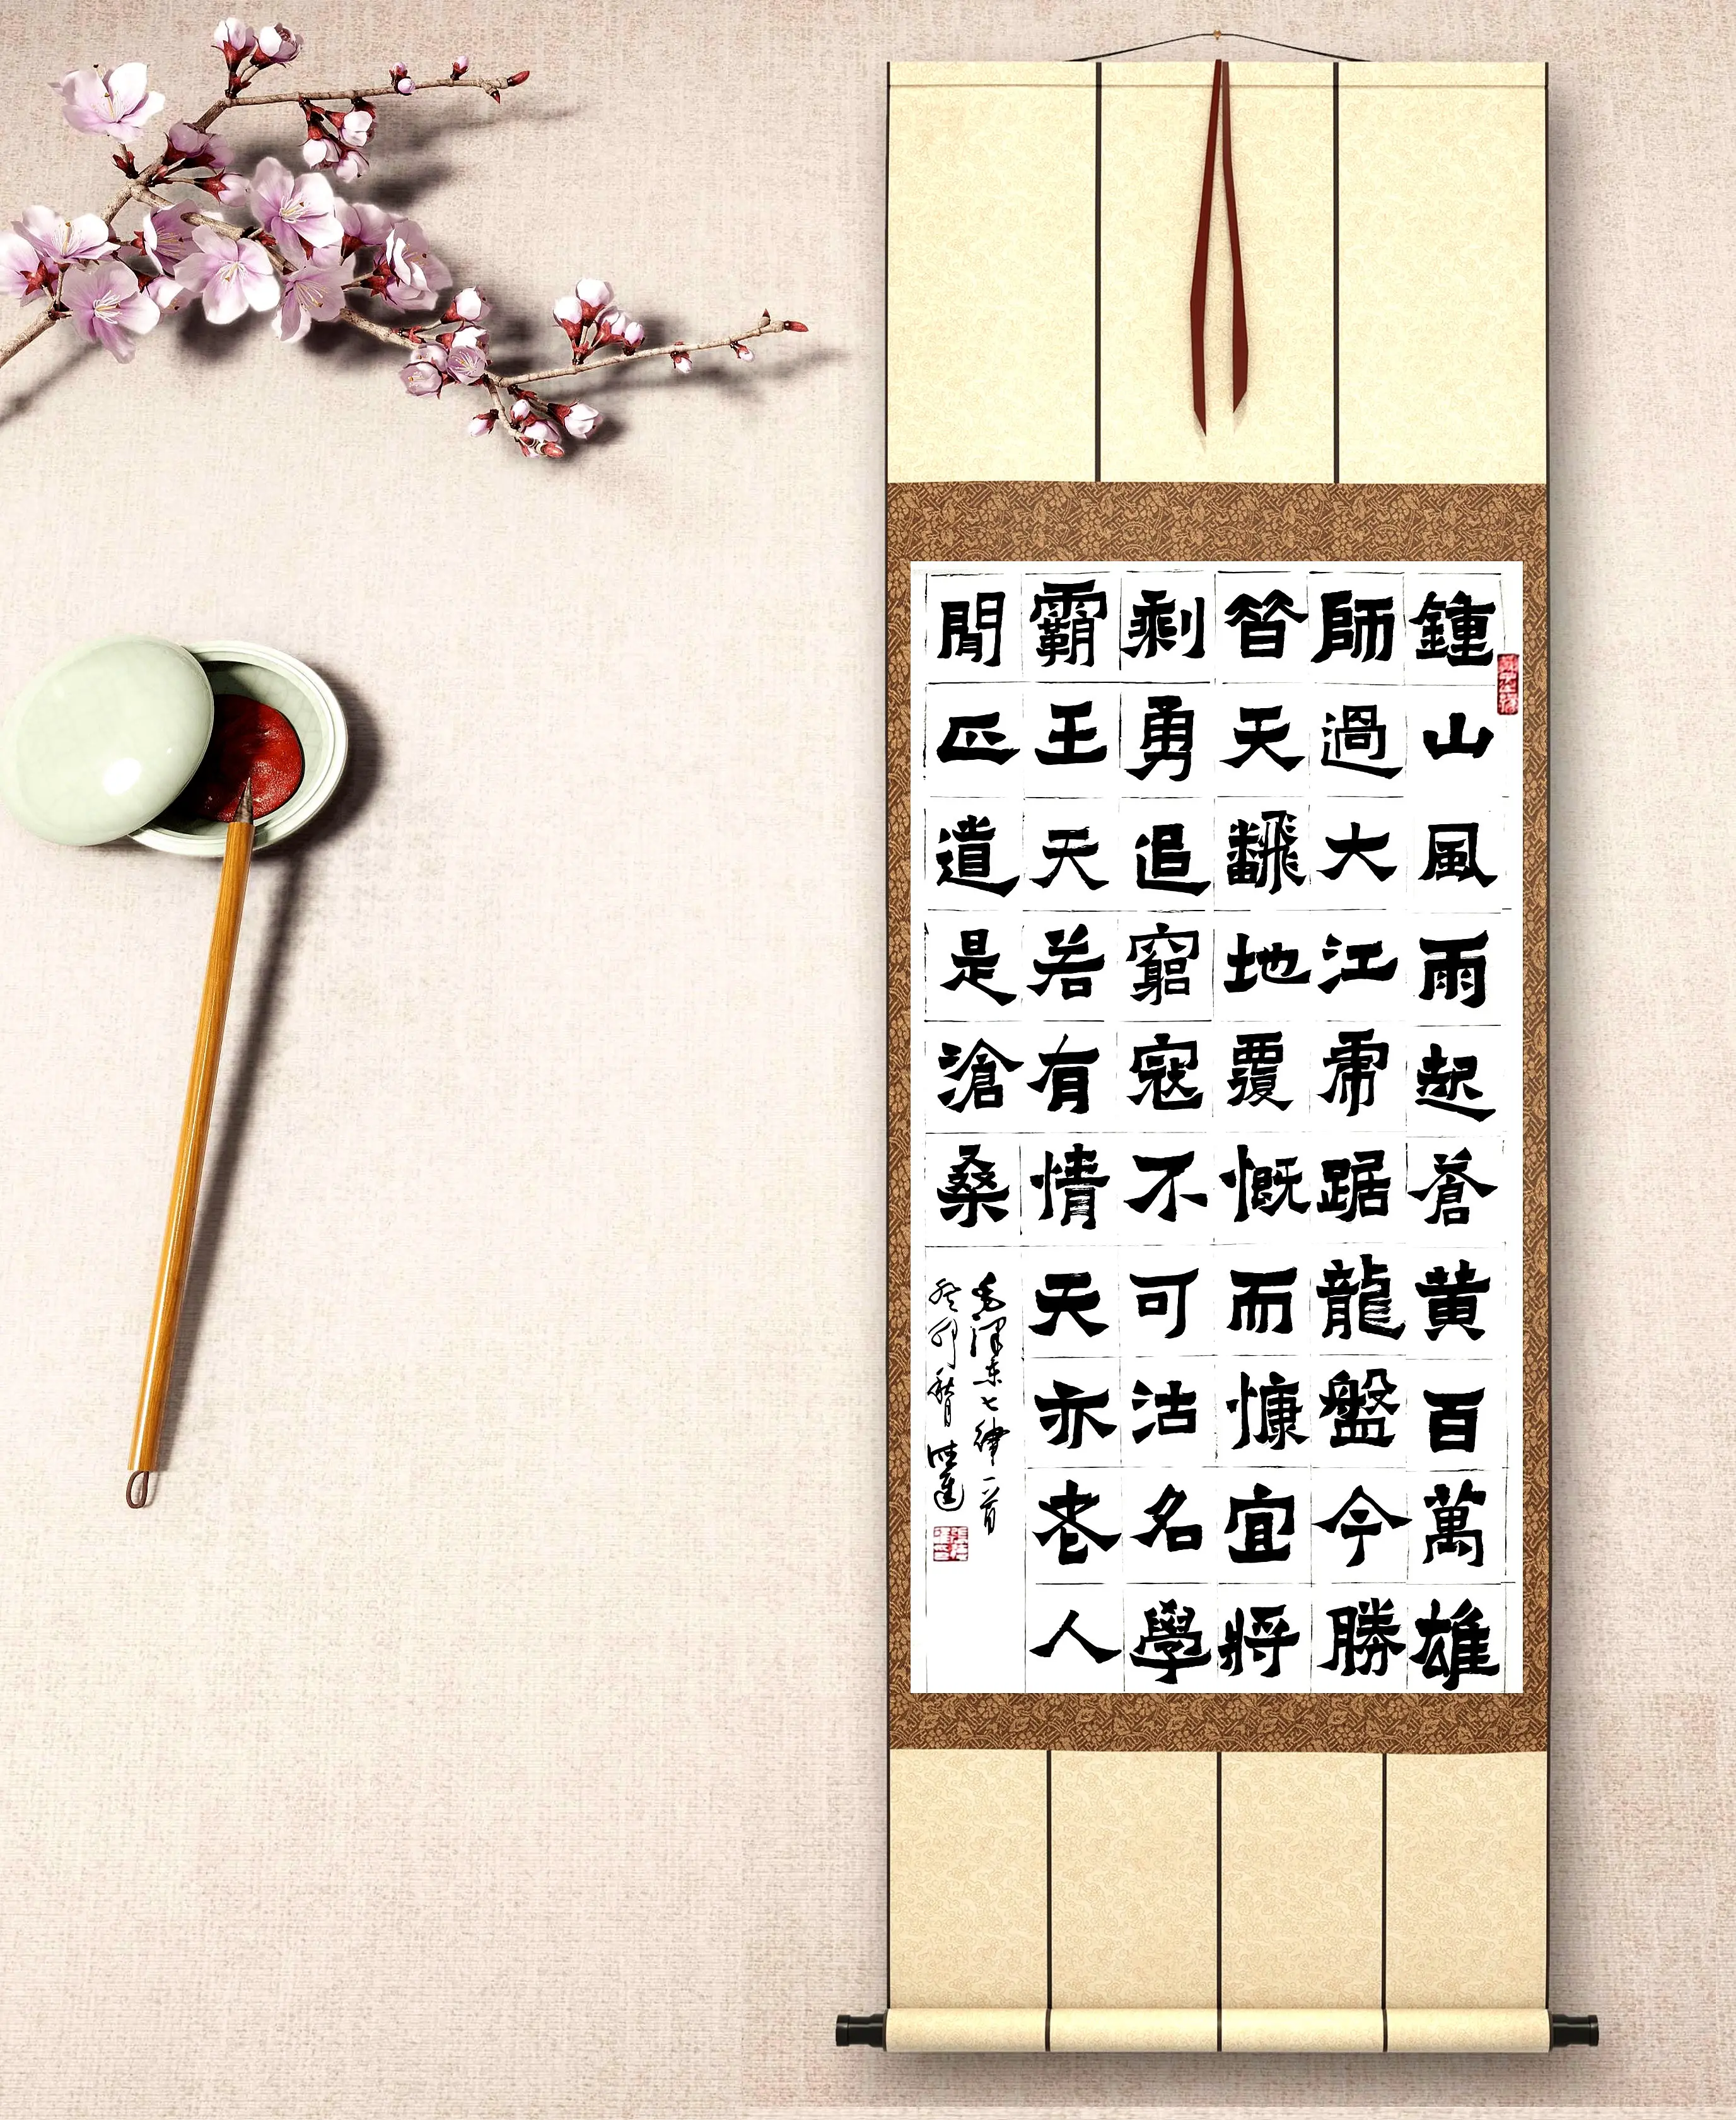 鍾山風雨起蒼黄百萬雄
師過大江虎踞龍盤今勝
昔天飜地覆慨而慷宜將
剩勇追窮寇不可沽名學
霸王天若有情天亦老人
閒正道是滄桑
毛澤東七律一首
癸卯秋月